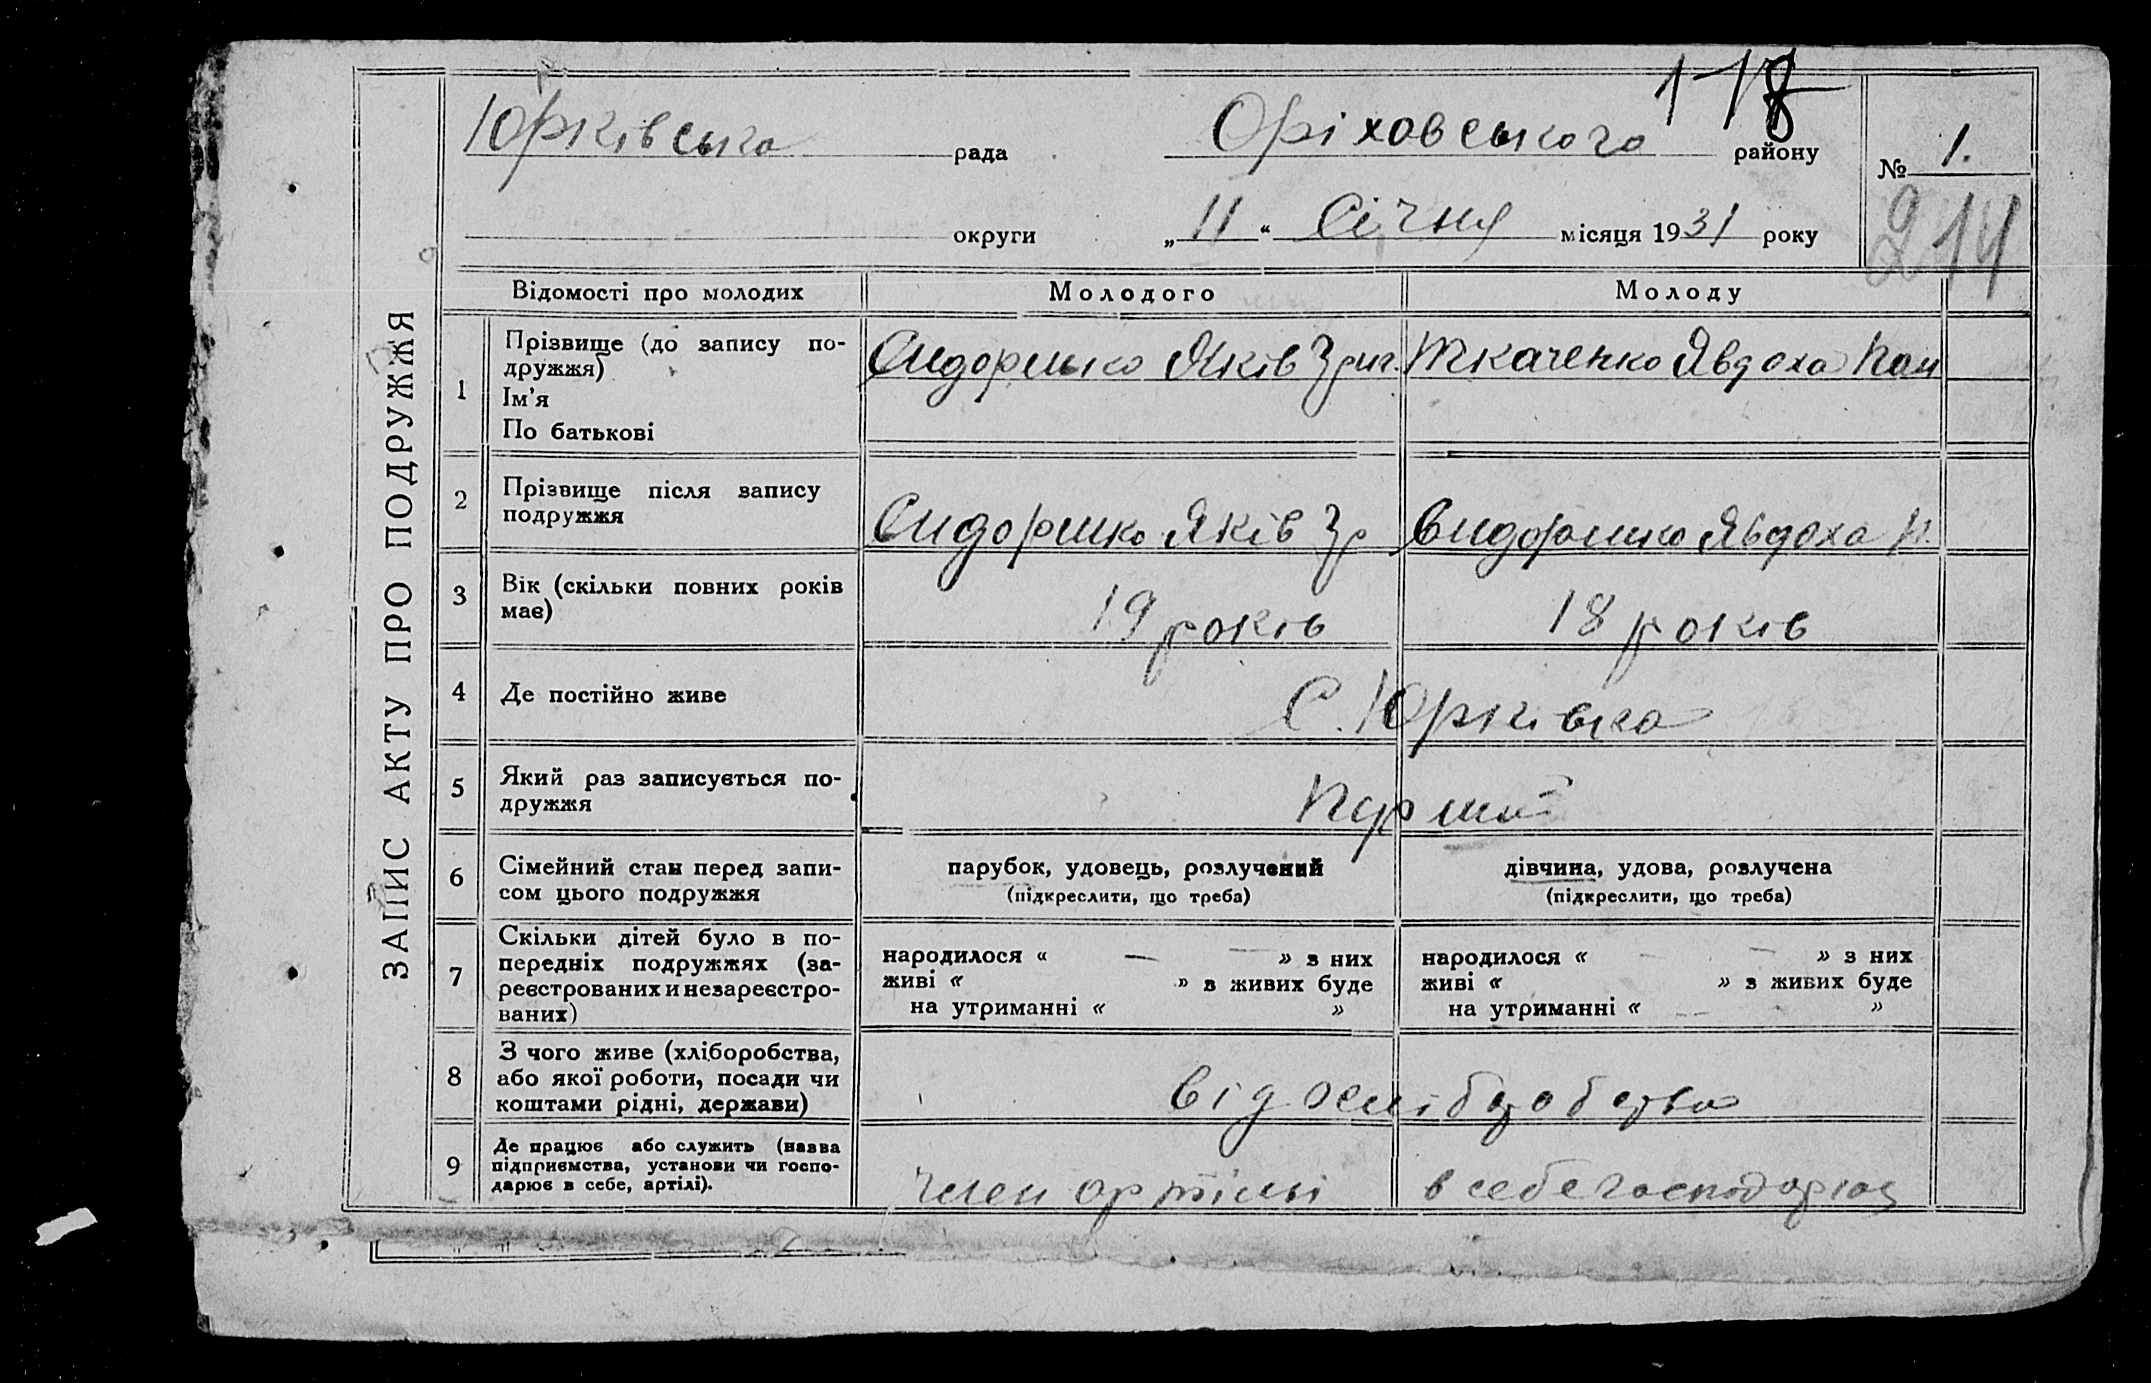 178
Юрківська рада Оріховського району № 1.
214
округи „ 11 “ Січня місяця 1931 року
ЗАПИС АКТУ ПРО ПОДРУЖЖЯ
Відомості про молодих Молодого Молоду
1 Прізвище (до запису по-
дружжя)
Ім'я
По батькові
Сидоренко Яків Григ. Ткаченко Явдоха Пан
2 Прізвище після запису
подружжя
Сидоренко Яків Гр Сидоренко Явдоха П.
3 Вік (скільки повних років
має)
19 років 18 років
4 Де постійно живе С. Юрківка
5 Який раз записується по-
дружжя
Перший
6 Сімейний стан перед запи-
сом цього подружжя
парубок, удовець, розлучений дівчина, удова, розлучена
(підкреслити, що треба) (підкреслити, що треба)
7 Скільки дітей було в по-
передніх подружжях (за-
реєстрованих и незареєстро-
ваних)
народилося « — » з них народилося « — » з них
живі « » з живих буде живі « » з живих буде
на утриманні « » на утриманні « — »
8 З чого живе (хліборобства,
або якої роботи, посади чи
коштами рідні, держави)
від
9 Де працює або служить (назва
підприємства, установи чи госпо-
дарює в себе, артілі).
член артілі в себе господарює